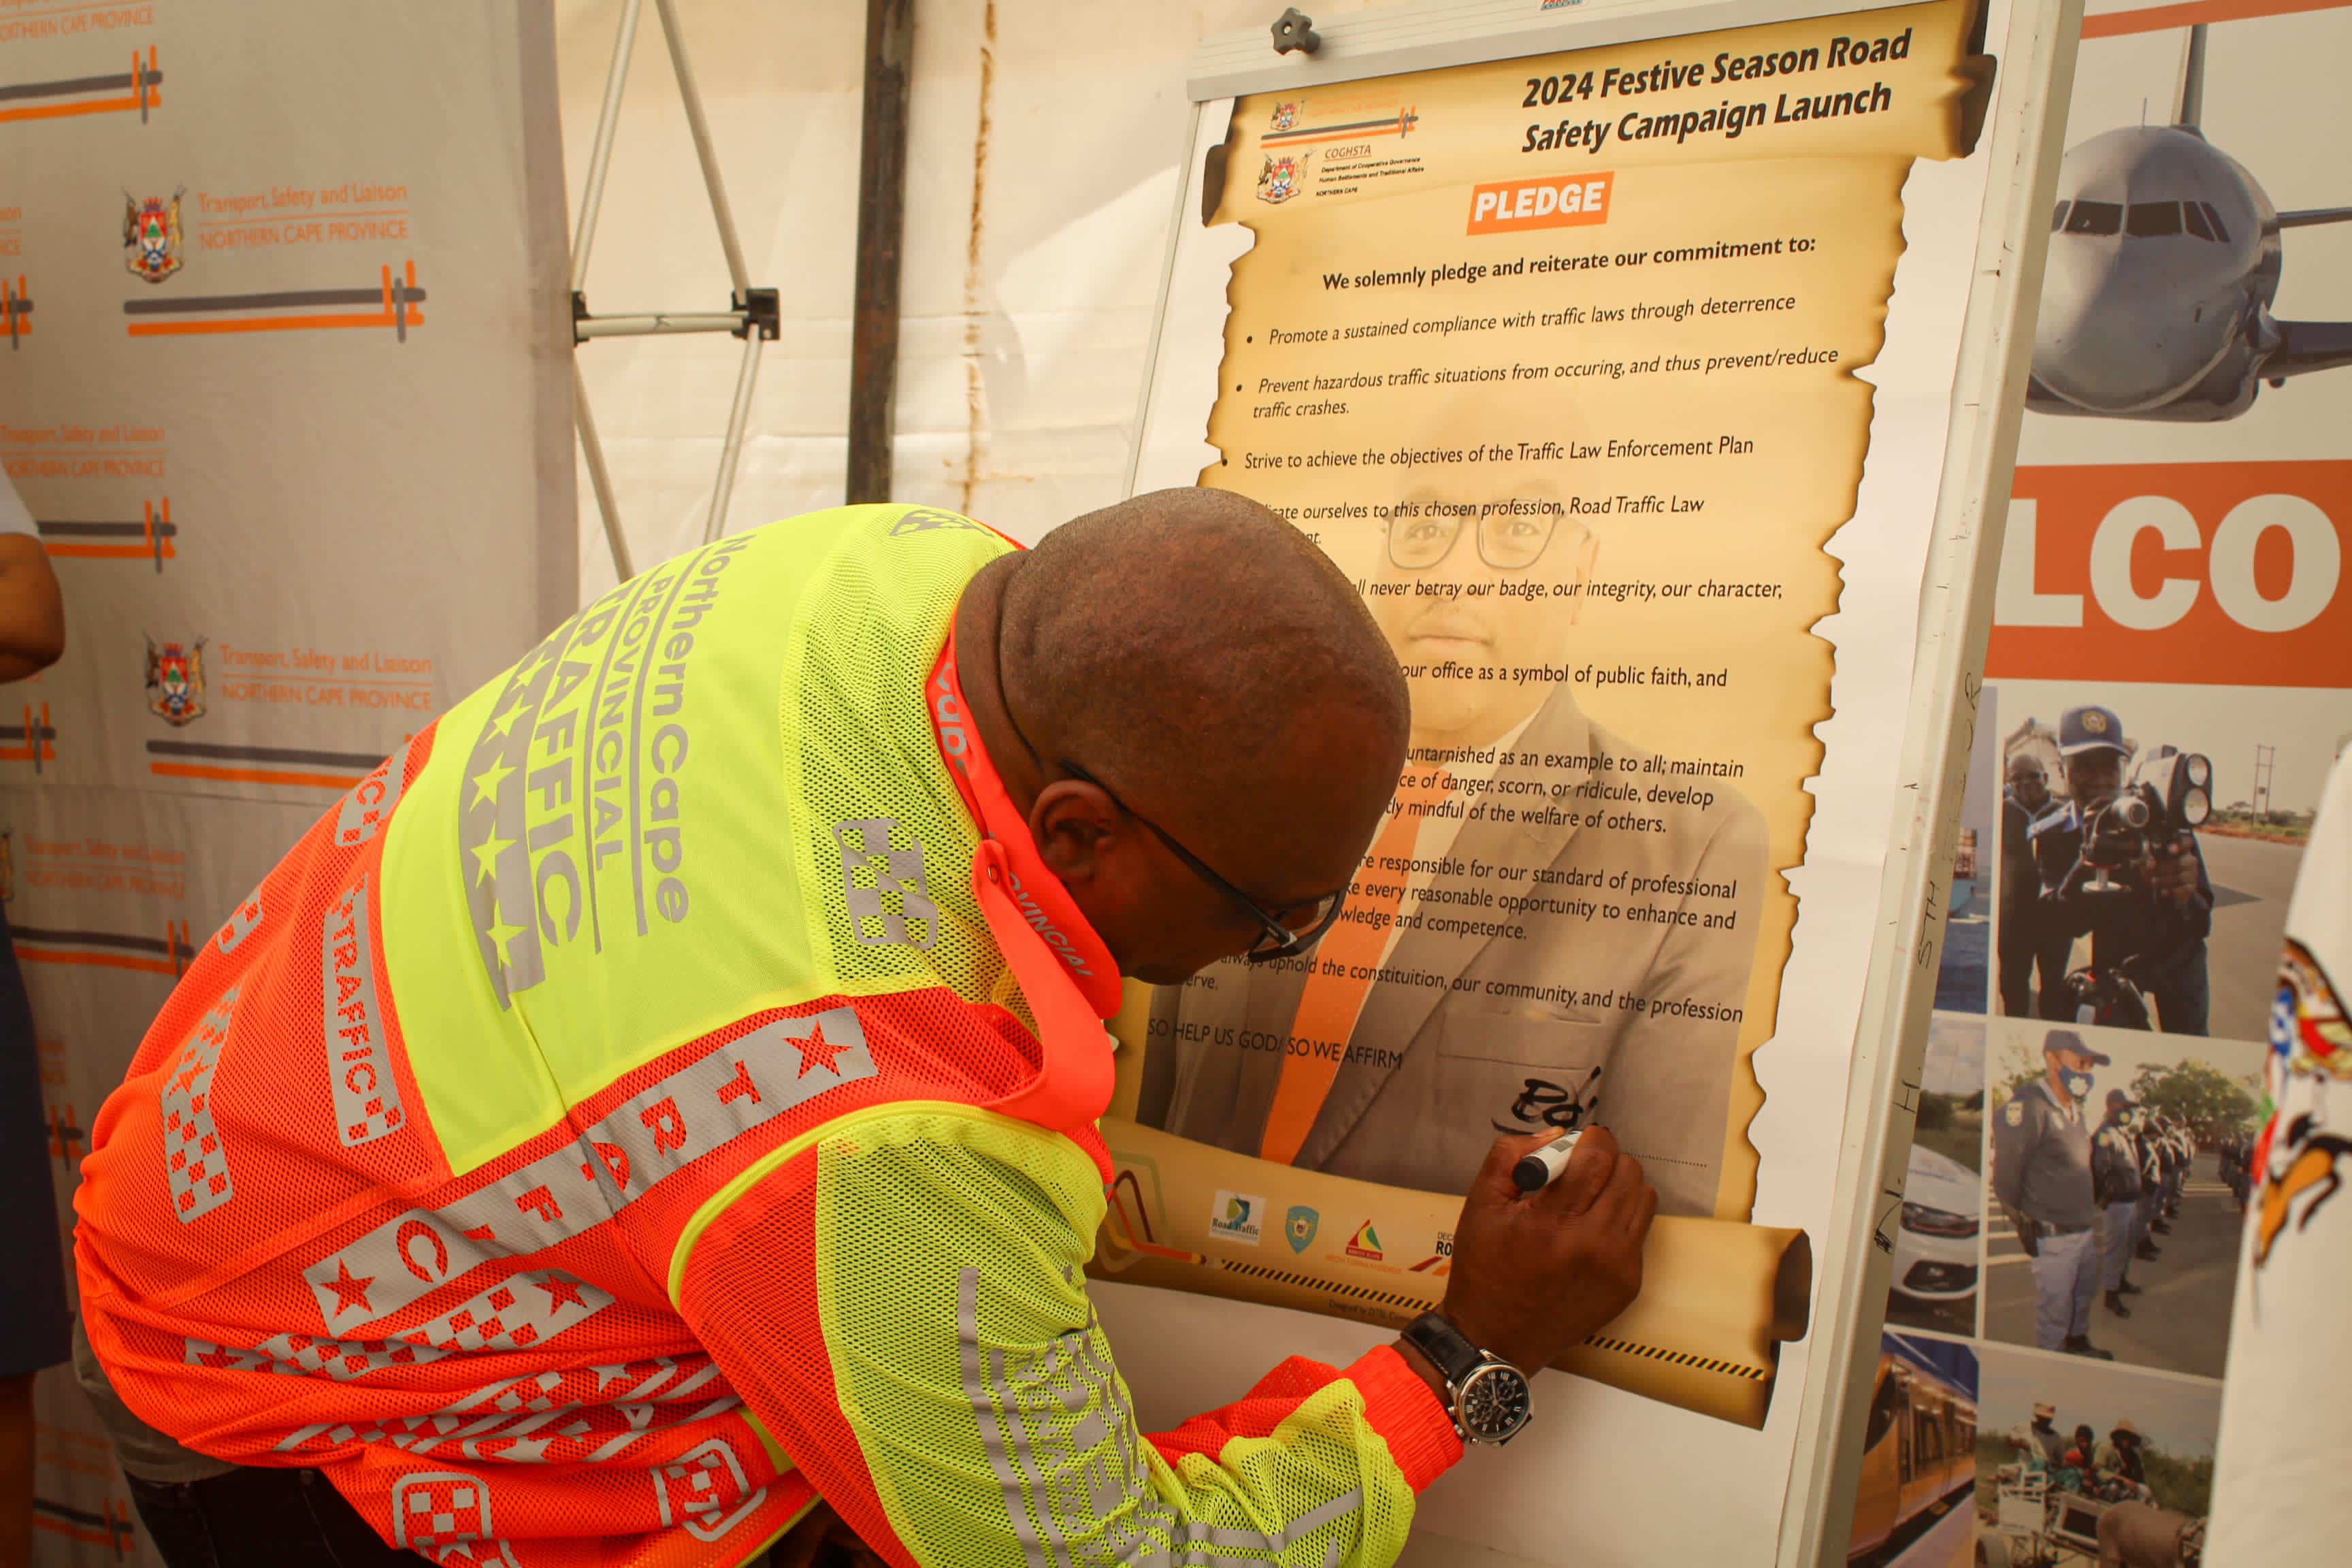 NORTHERN CAPE PROVINCE
Transport, Safety and Liaison
NORTHERN CAPE PROVINCE
Transport, Safety and Liaison
NORTHERN CAPE PROVINCE
Transport, Safety and Liaison
NORTHERN CAPE PROVINCE
Transport, Safety and Liaison
NORTHERN CAPE PROVINCE
2024 Festive Season Road
Safety Campaign Launch
COGHSTA
Department of Cooperative Governance
Human Settlements and Traditional Affairs
NORTHERN CAPE
PLEDGE
We solemnly pledge and reiterate our commitment to:
• Promote a sustained compliance with traffic laws through deterrence
• Prevent hazardous traffic situations from occuring, and thus prevent/reduce
traffic crashes.
• Strive to achieve the objectives of the Traffic Law Enforcement Plan
ourselves to this chosen profession, Road Traffic Law
never betray our badge, our integrity, our character,
our office as a symbol of public faith, and
untarnished as an example to all; maintain
of danger, scorn, or ridicule, develop
mindful of the welfare of others.
responsible for our standard of professional
every reasonable opportunity to enhance and
and competence.
always uphold the constituition, our community, and the profession
SO HELP US GOD/ SO WE AFFIRM
Road Traffic
LCO
NorthernCape
PROVINCIAL
TRAFFIC
TRAFFIC
TRAFFIC
PROVINCIAL